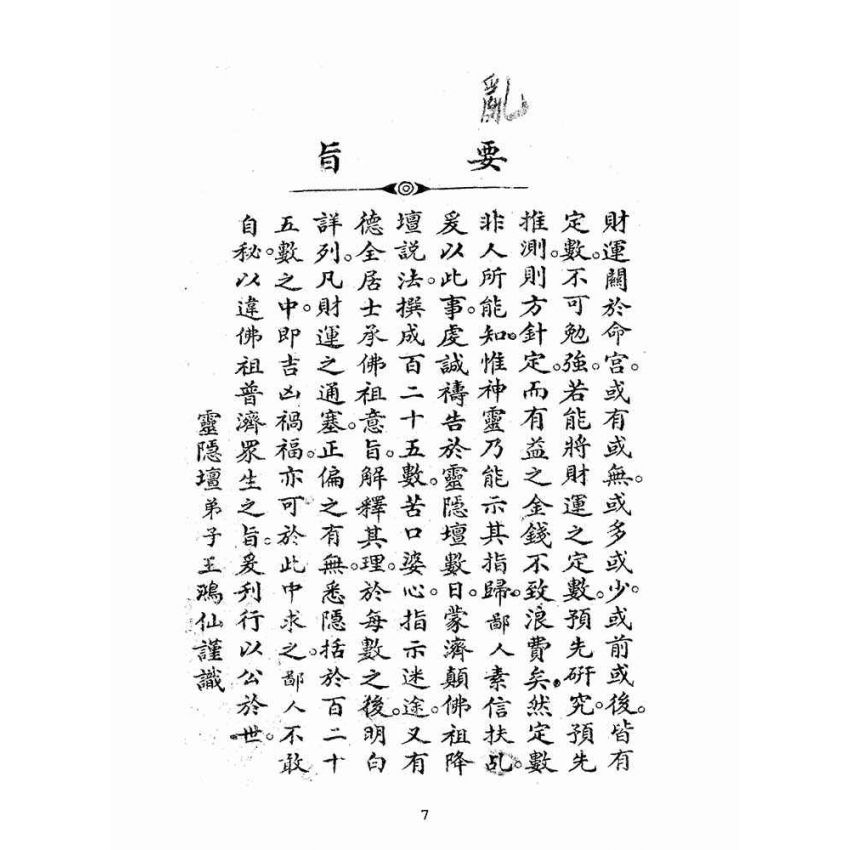 亂
要旨
財運關於命宮。或有或無。或多或少。或前或後。皆有
定數。不可勉強。若能將財運之定數。預先研究。預先
推測。則方針定。而有益之金錢不致浪費矣。然定數
非人所能知。惟神靈乃能示其指歸。鄙人素信扶乩。
爰以此事。虔誠禱告於靈隱壇數日。蒙濟顛佛祖降
壇說法。撰成百二十五數。苦口婆心。指示迷途。又有
德全居士承佛祖意旨。解釋其理。於每數之後。明白
詳列。凡財運之通塞。正偏之有無。悉隱括於百二十
五數之中。即吉凶禍福。亦可於此中求之。鄙人不敢
自秘。以違佛祖普濟眾生之旨。爰刋行以公於世。
靈隱壇弟子王鴻仙謹識
7